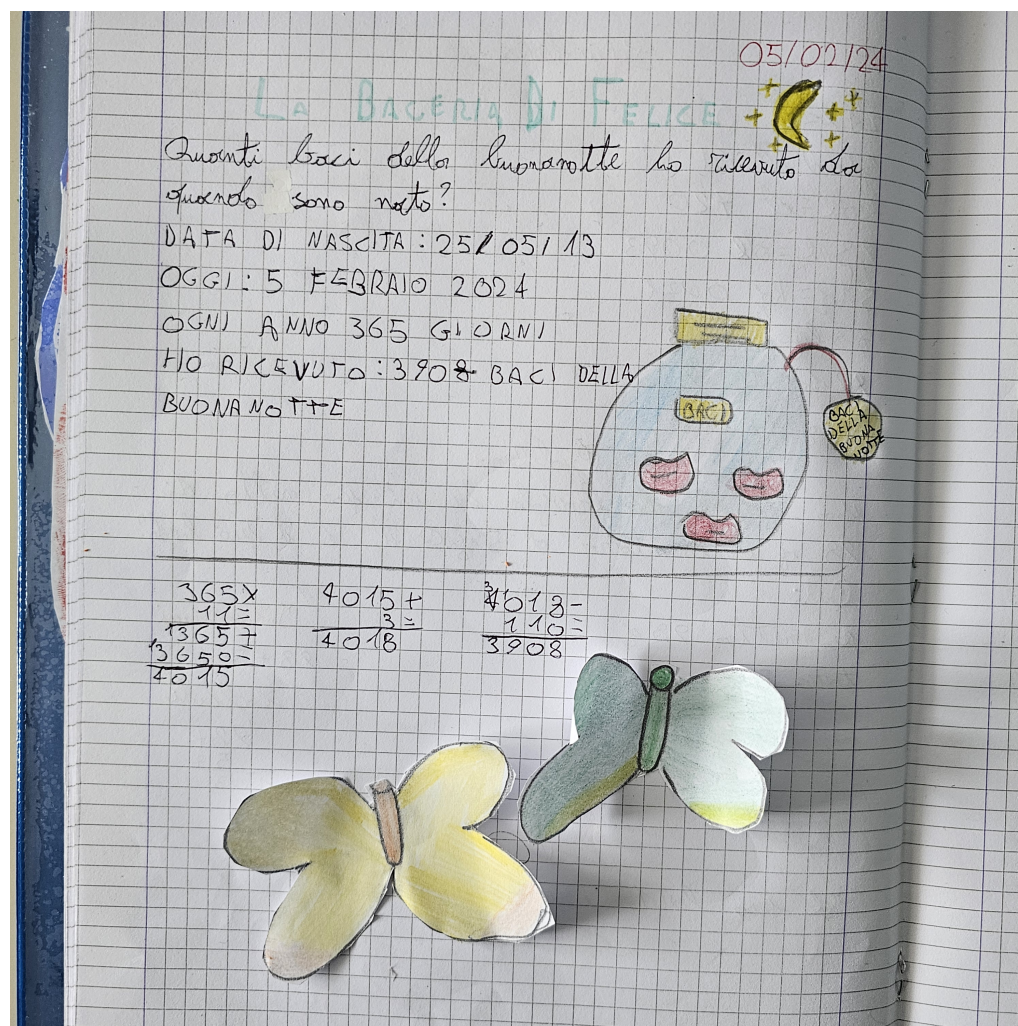 05/02/24
LA BACERIA DI FELICE
Quanti baci della buonanotte ho ricevuto da
quando sono nato?
DATA DI NASCITA: 25/05/13
OGGI: 5 FEBRAIO 2024
OGNI ANNO 365 GIORNI
HO RICEVUTO: 3908 BACI DELLA
BUONANOTTE
BACI
BACI
DELLA
BUONA
NOTTE
365x
11=
365+
3650-
4015
4015+
3=
4018
4018-
110=
3908